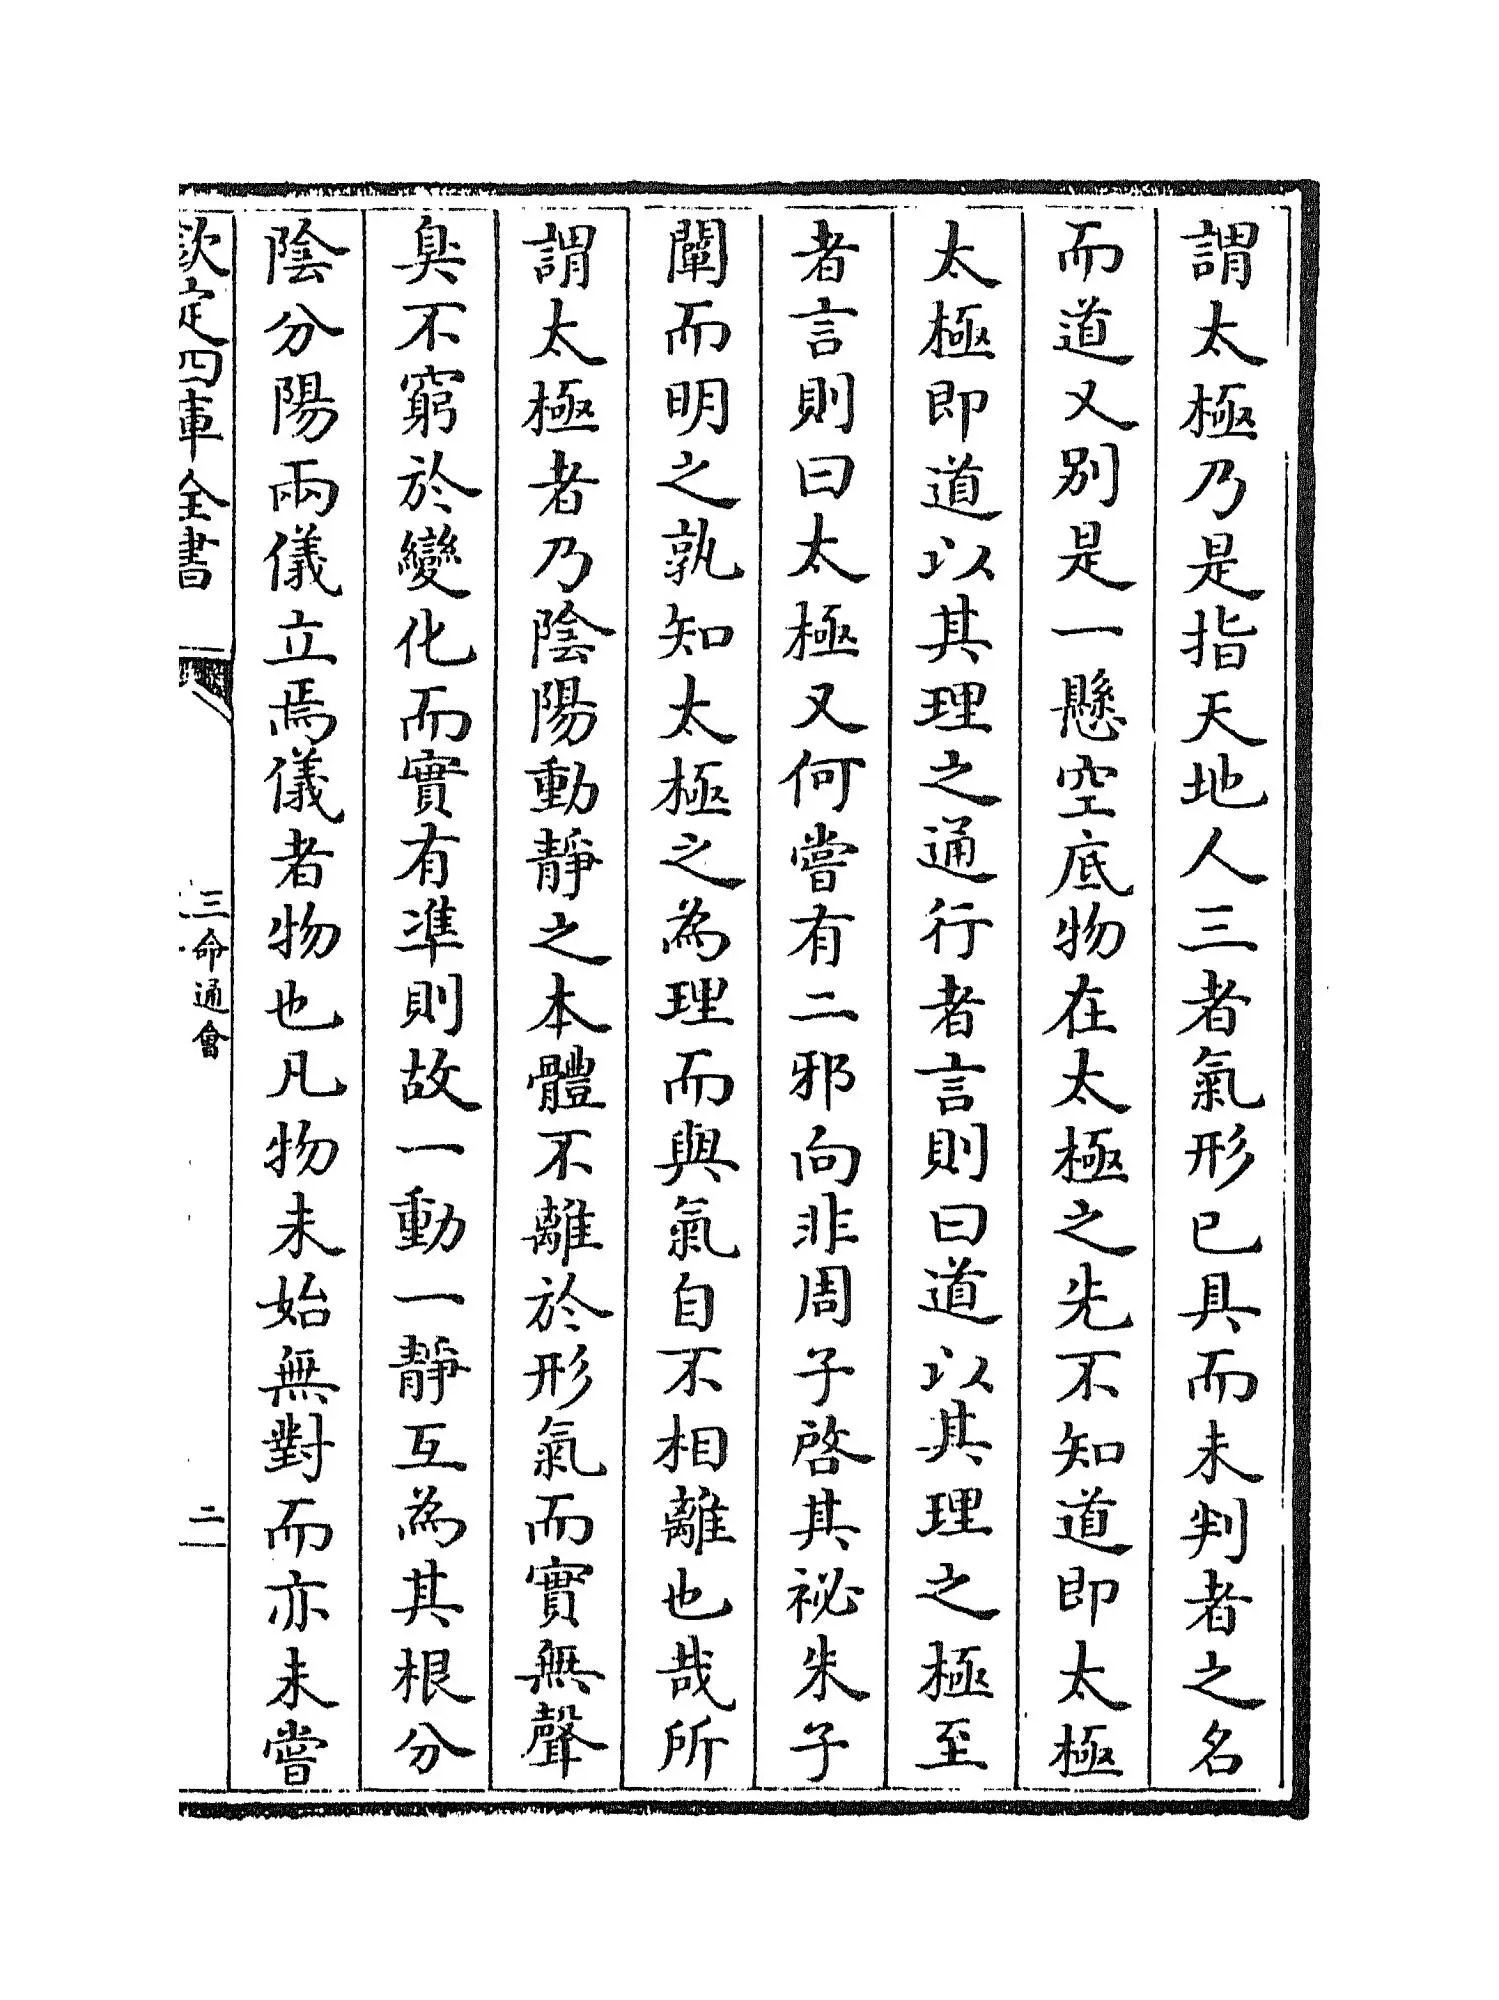 謂太極乃是指天地人三者氣形已具而未判者之名
而道又別是一懸空底物在太極之先不知道即太極
太極即道以其理之通行者言則曰道以其理之極至
者言則曰太極又何嘗有二邪向非周子啓其祕朱子
闡而明之孰知太極之為理而與氣自不相離也哉所
謂太極者乃陰陽動靜之本體不離於形氣而實無聲
臭不窮於變化而實有準則故一動一靜互為其根分
陰分陽兩儀立焉儀者物也凡物未始無對而亦未嘗
欽定四庫全書
三命通會
二